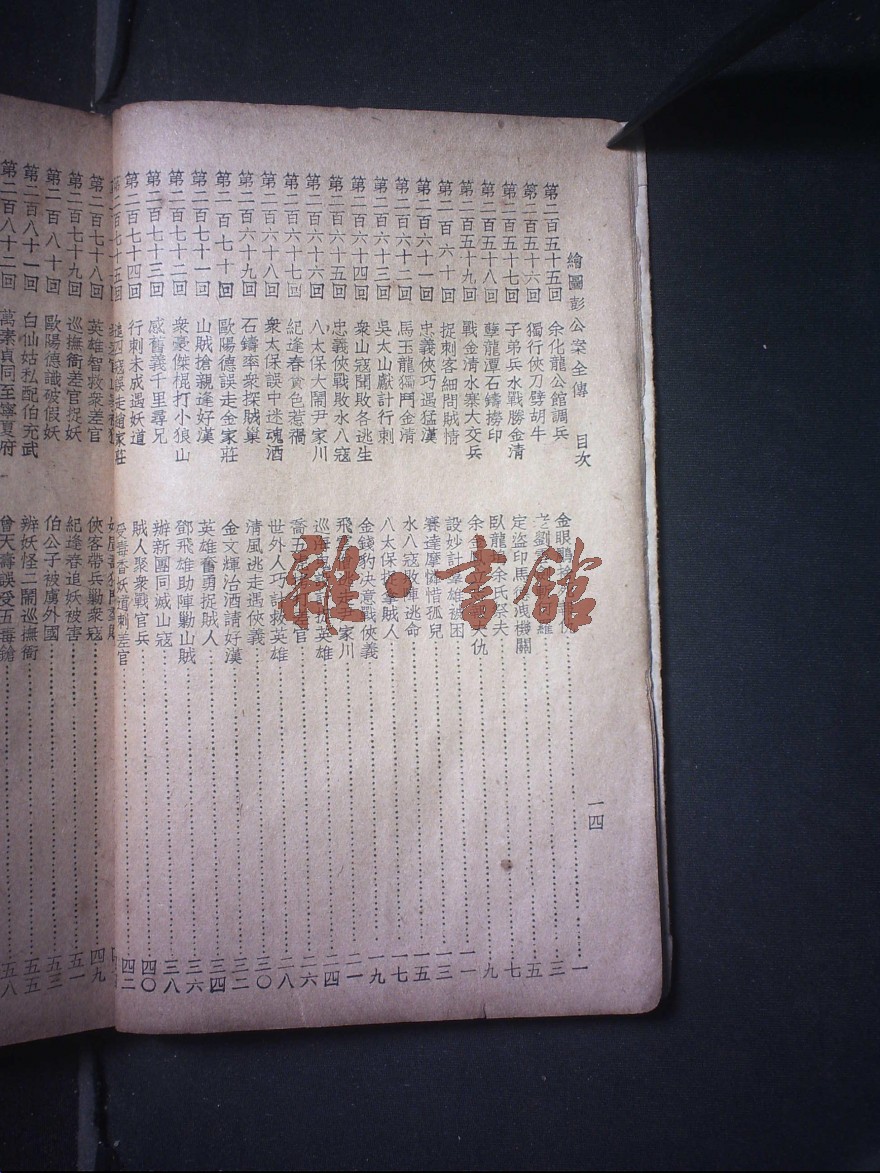 繪圖彭公案全傳 目次 一四
第二百五十五回 余化龍公館調兵 金眼鵰 一
第二百五十六回 獨行俠刀劈胡牛 老劉 三
第二百五十七回 子弟兵水戰勝金清 定盜印馬 洩機關 五
第二百五十八回 孽龍潭石鑄撈印 臥龍 余氏 夫 七
第二百五十九回 戰金清水寨大交兵 余金 夫仇 九
第二百六十回 捉刺客細問賊情 設妙計羣雄被困 一一
第二百六十一回 忠義俠巧遇猛漢 賽達摩憐惜孤兒 一三
第二百六十二回 馬玉龍獨鬥金清 水八寇敗陣逃命 一五
第二百六十三回 吳太山獻計行刺 八太保 拏賊人 一七
第二百六十四回 衆山寇聞敗各逃生 金錢豹決意戰俠義 一九
第二百六十五回 忠義俠戰敗水八寇 飛 家川 二一
第二百六十六回 八太保大鬧尹家川 巡 英雄 二四
第二百六十七回 紀逢春貪色惹禍 喬五 官 二六
第二百六十八回 衆太保誤中迷魂酒 世外人巧計救英雄 二八
第二百六十九回 石鑄率衆探賊巢 清風逃走遇俠義 三〇
第二百七十回 歐陽德誤走金家莊 金文輝治酒請好漢 三二
第二百七十一回 山賊搶親逢好漢 英雄奮勇捉賊人 三四
第二百七十二回 衆豪傑棍打小狼山 鄧飛雄助陣勦山賊 三六
第二百七十三回 感舊義千里尋兄 辦新團同滅山寇 三八
第二百七十四回 行刺未成遇妖道 賊人聚衆戰官兵 四〇
第二百七十五回 四寇誤走趙家莊 受毒香妖道刺差官 四二
第二百七十八回 英雄智救衆差官 俠客帶兵勦衆寇 四九
第二百七十九回 巡撫衙差官捉妖 紀逢春追妖被害 五一
第二百八十回 歐陽德識破假妖 伯公子被虜外國 五三
第二百八十一回 白仙姑私配伯充武 辨妖怪二鬧巡撫衙 五五
第二百八十二回 萬素貞同至寧夏府 曾天壽誤受五毒鎗 五八
雜·書館